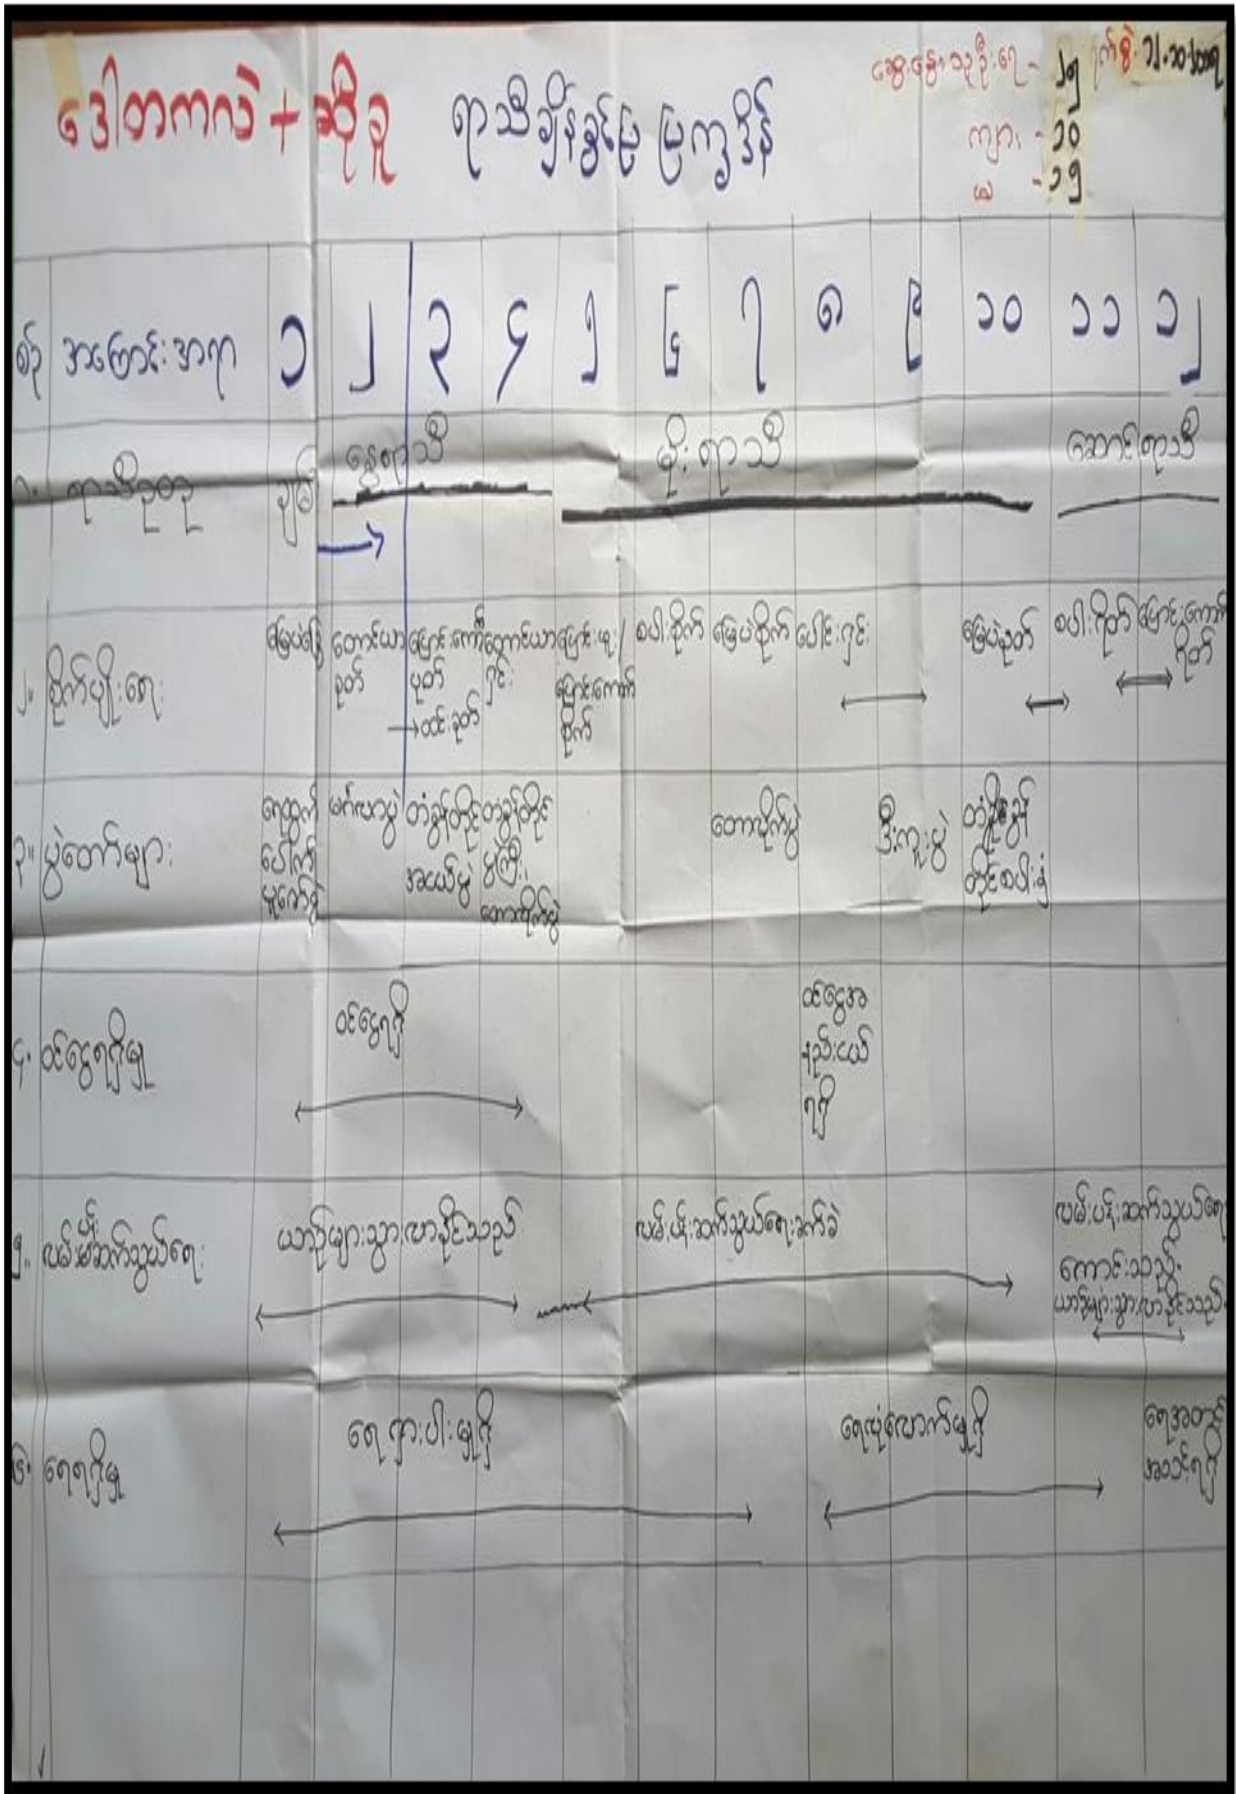 ဒေါတကလဲ + ဆိုခူ ရာသီချိန်ခွင်ပြ ပြက္ခဒိန်
ဆွေးနွေးသူဦးရေ - ၂၅ ရက်စွဲ
ကျား - ၁၀
မ - ၁၅
စဉ် အကြောင်းအရာ ၁ ၂ ၃ ၄ ၅ ၆ ၇ ၈ ၉ ၁၀ ၁၁ ၁၂
၁။ ရာသီဥတု နွေရာသီ မိုးရာသီ ဆောင်းရာသီ
၂။ စိုက်ပျိုးရေး
မြေပဲခြွေ
တောင်ယာ
ခုတ်
ပြောင်း
ပုတ်
ထင်းခုတ်
တောင်ယာ
ရှင်း
ပြောင်းဖူး/
စိုက်
စပါးစိုက်
မြေပဲစိုက်
ပေါင်းရှင်း
မြေပဲနုတ်
စပါးရိတ်
ပြောင်း
ရိတ်
၃။ ပွဲတော်များ
ရေထွက်
ပေါက်
မင်္ဂလာပွဲ
တံခွန်တိုင်
အငယ်ပွဲ
တံခွန်တိုင်
ပွဲကြီး၊
တောလိုက်ပွဲ
တောလိုက်ပွဲ
ဒီးကူးပွဲ
၄။ ဝင်ငွေရရှိမှု
ဝင်ငွေရရှိ
ဝင်ငွေအ
နည်းငယ်
ရရှိ
၅။ လမ်းပန်းဆက်သွယ်ရေး
ယာဉ်များသွားလာနိုင်သည်
လမ်းပန်းဆက်သွယ်ရေးခက်ခဲ
လမ်းပန်းဆက်သွယ်ရေး
ကောင်းသည်။
ယာဉ်များသွားလာနိုင်သည်။
၆။ ရေရရှိမှု
ရေရှားပါးမှုရှိ
ရေလုံလောက်မှုရှိ
ရေအတွင်
အသင့်ရရှိ